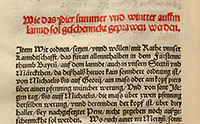 Wie das Pier summer vnd winter auffm
lannd sol geschennckt vnd prawen werden.
Item Wir ordnen / setzen / vnnd wöllen / mit Rathe vnnser
Lanndtschafft / das füran allennthalben in dem Fürstenn
thumb Bayrn / auf dem lannde / auch in vnnsern Stetn vnd
Märckthen / da deßhalb hieuor kain sonndere ordnung ist /
von Michaelis biß auf Georij / ain mass oder ain kopf pier
über ainen pfenning müncher werung / Vnd von sant Jör-
gen tag / biß auf Michaelis / die mass über zwen pfenning
derselben werung / vnd derennden der kopf ist / über drey
haller / bey nachgesetzter Pene / nicht gegeben noch aufge-
schenckt sol werden. Wo auch ainer nit Mertzn / sonnder